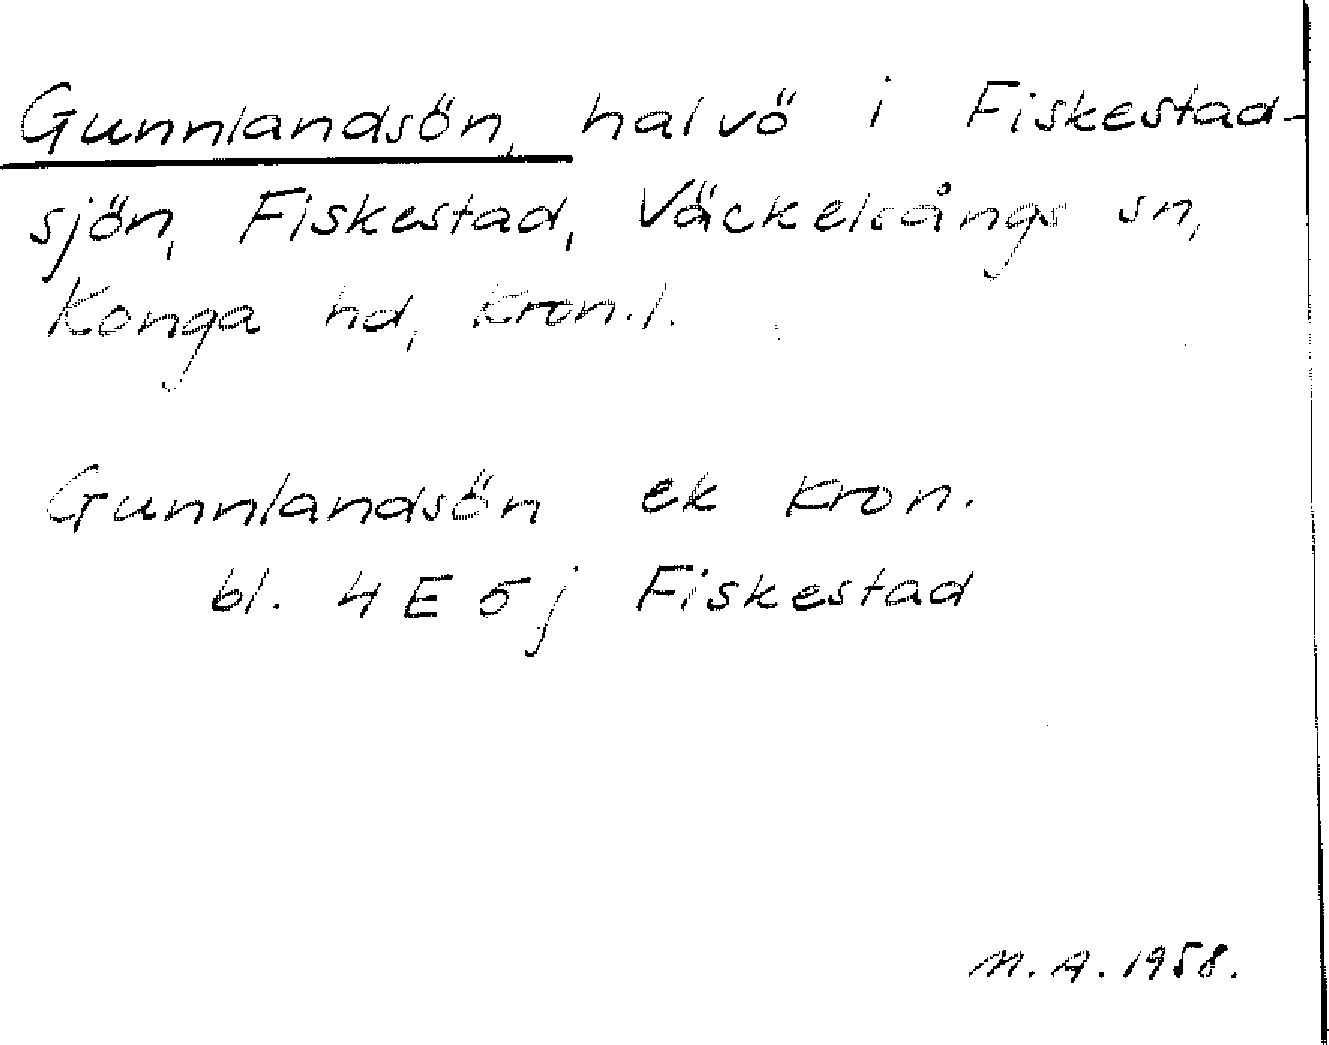 Gunnlandsön, halvö i Fiskestad-
sjön, Fiskestad, Väckelsångs sn,
Konga hd, Kron.l.
Gunnlandsön ek Kron.
bl. 4 E 5 j Fiskestad
M. A. 1958.